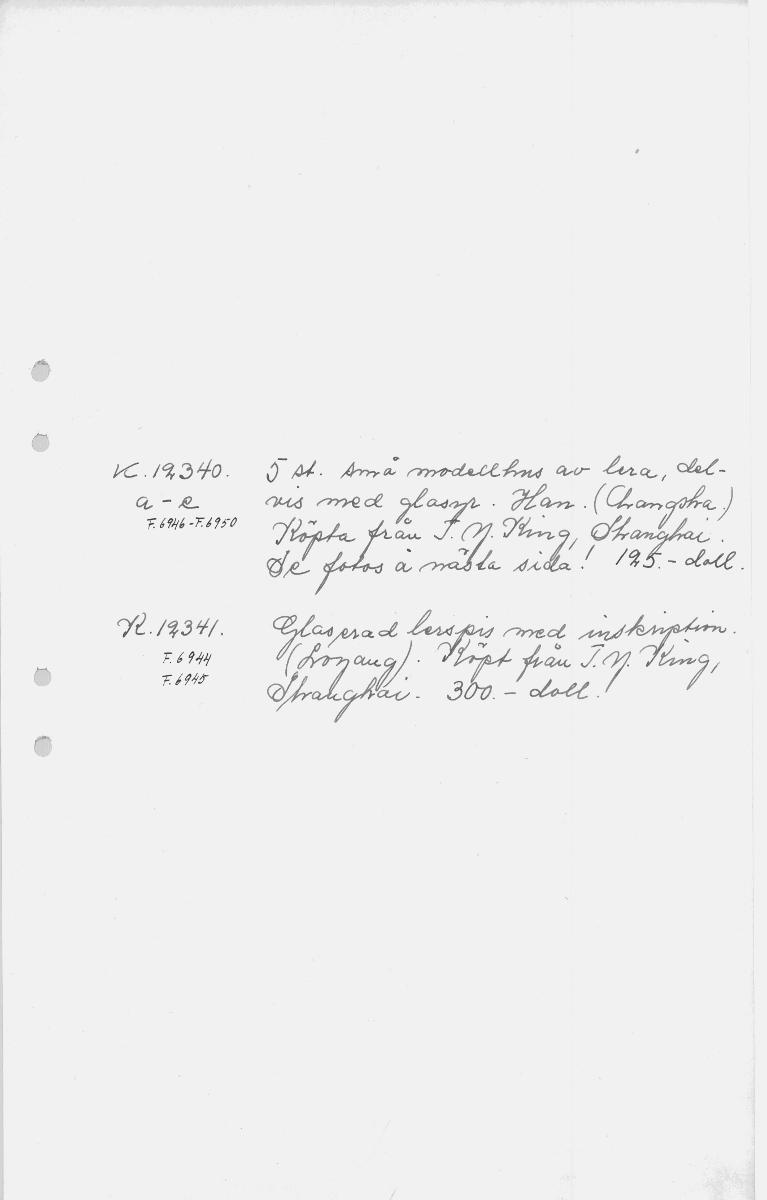 K.12340. 5 st. små modellhus av lera, del-
a - e vis med glasyr. Han. (Changsha.)
F.6946-F.6950 Köpta från T. Y. King, Shanghai.
Se fotos å nästa sida! 125.- doll.
K.12341. Glaserad lerspis med inskription.
F.6944 (Loyang). Köpt från T. Y. King,
F.6945 Shanghai. 300.- doll.!